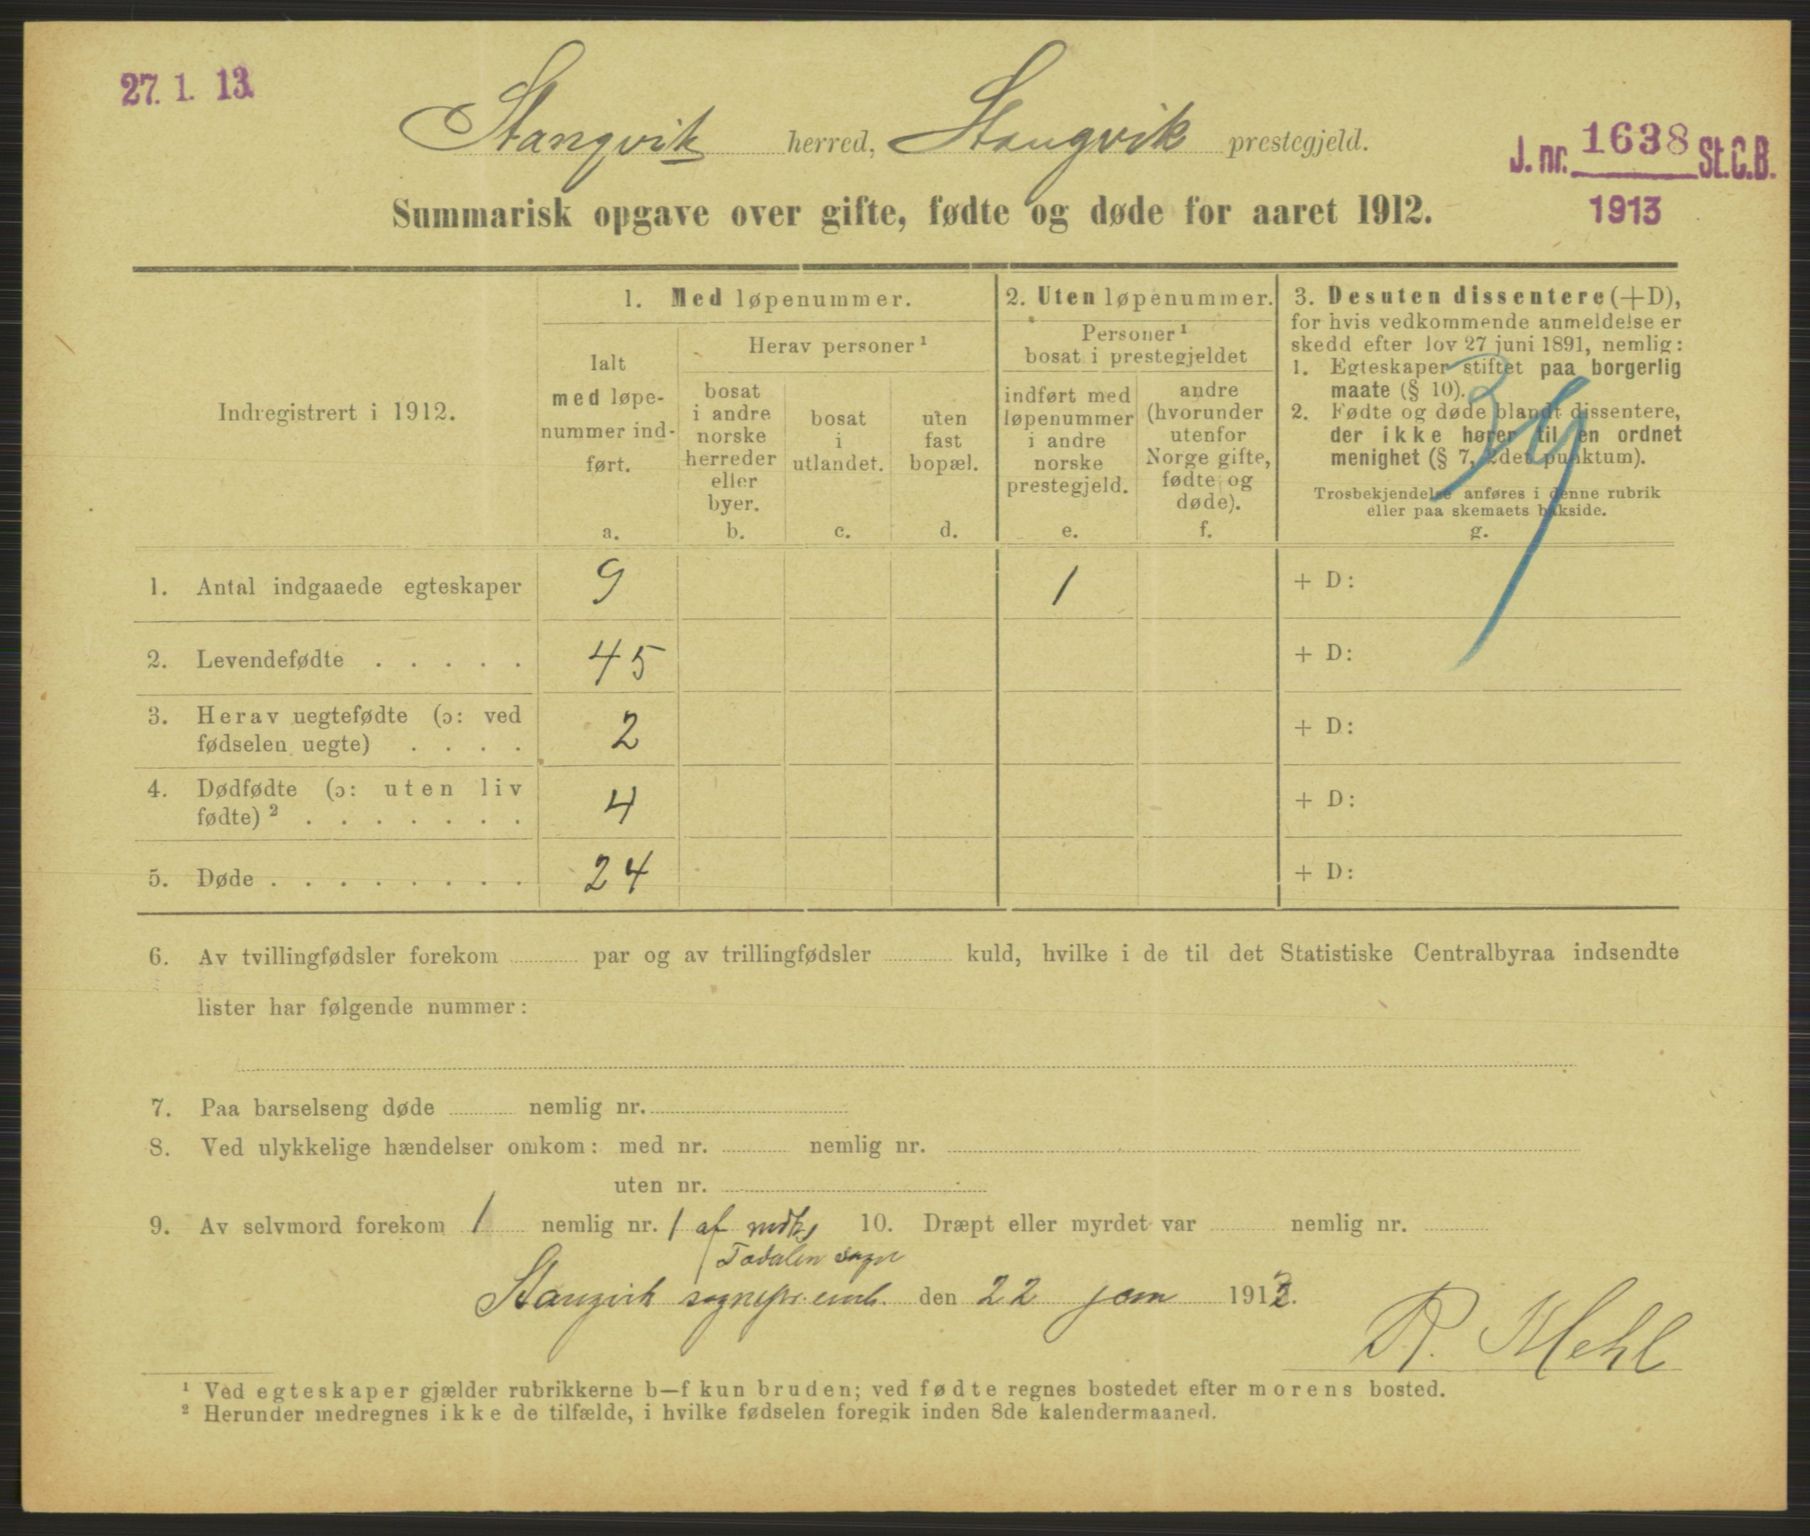 27. 1. 13.
Stangvik herred, Stangvik prestegjeld.
J. nr. 1638 St.C.B.
1913
Summarisk opgave over gifte, fødte og døde for aaret 1912.
Indregistrert i 1912.
1. Med løpenummer.
Ialt
med løpe-
nummer ind-
ført.
a.
Herav personer ¹
bosat
i andre
norske
herreder
eller
byer.
b.
bosat
i
utlandet.
c.
uten
fast
bopæl.
d.
2. Uten løpenummer.
Personer ¹
bosat i prestegjeldet
indført med
løpenummer
i andre
norske
prestegjeld.
e.
andre
(hvorunder
utenfor
Norge gifte,
fødte og
døde).
f.
3. Desuten dissentere (+D),
for hvis vedkommende anmeldelse er
skedd efter lov 27 juni 1891, nemlig:
1. Egteskaper stiftet paa borgerlig
maate (§ 10).
2. Fødte og døde blandt dissentere,
der ikke hører til en ordnet
menighet (§ 7, 2det punktum).
Trosbekjendelse anføres i denne rubrik
eller paa skemaets bakside.
g.
1. Antal indgaaede egteskaper 9 1 + D:
2. Levendefødte . . . . . 45 + D:
3. Herav uegtefødte (ɔ: ved
fødselen uegte) . . . . 2 + D:
4. Dødfødte (ɔ: uten liv
fødte) ² . . . . . . . 4 + D:
5. Døde . . . . . . . . 24 + D:
6. Av tvillingfødsler forekom par og av trillingfødsler kuld, hvilke i de til det Statistiske Centralbyraa indsendte
lister har følgende nummer:
7. Paa barselseng døde nemlig nr.
8. Ved ulykkelige hændelser omkom: med nr. nemlig nr.
uten nr.
9. Av selvmord forekom 1 nemlig nr. 1 af 10. Dræpt eller myrdet var nemlig nr.
Todalen sogn
Stangvik sognepr.emb. den 22 jan 1913.
R. Mehl
¹ Ved egteskaper gjælder rubrikkerne b—f kun bruden; ved fødte regnes bostedet efter morens bosted.
² Herunder medregnes ikke de tilfælde, i hvilke fødselen foregik inden 8de kalendermaaned.